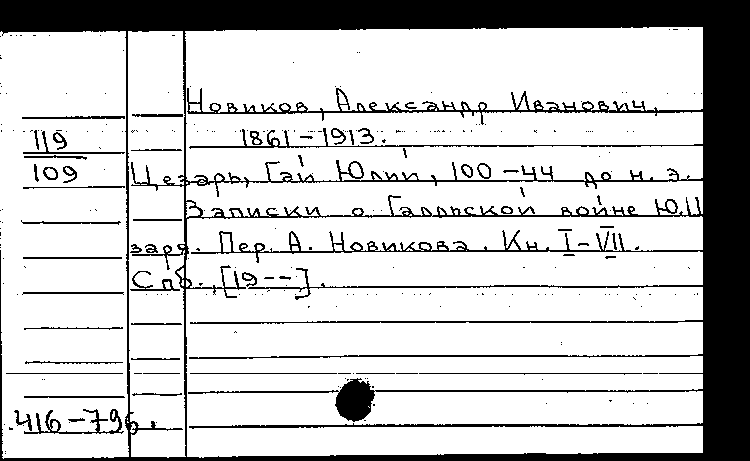 Новиков, Александр Иванович,
119
1861-1913.
109
Цезарь, Гай Юлий, 100-44 до н. э.
Записки о Галльской войне Ю.Ц
заря. Пер. А. Новикова. Кн. I-VII.
Спб., [19--].
416-796.